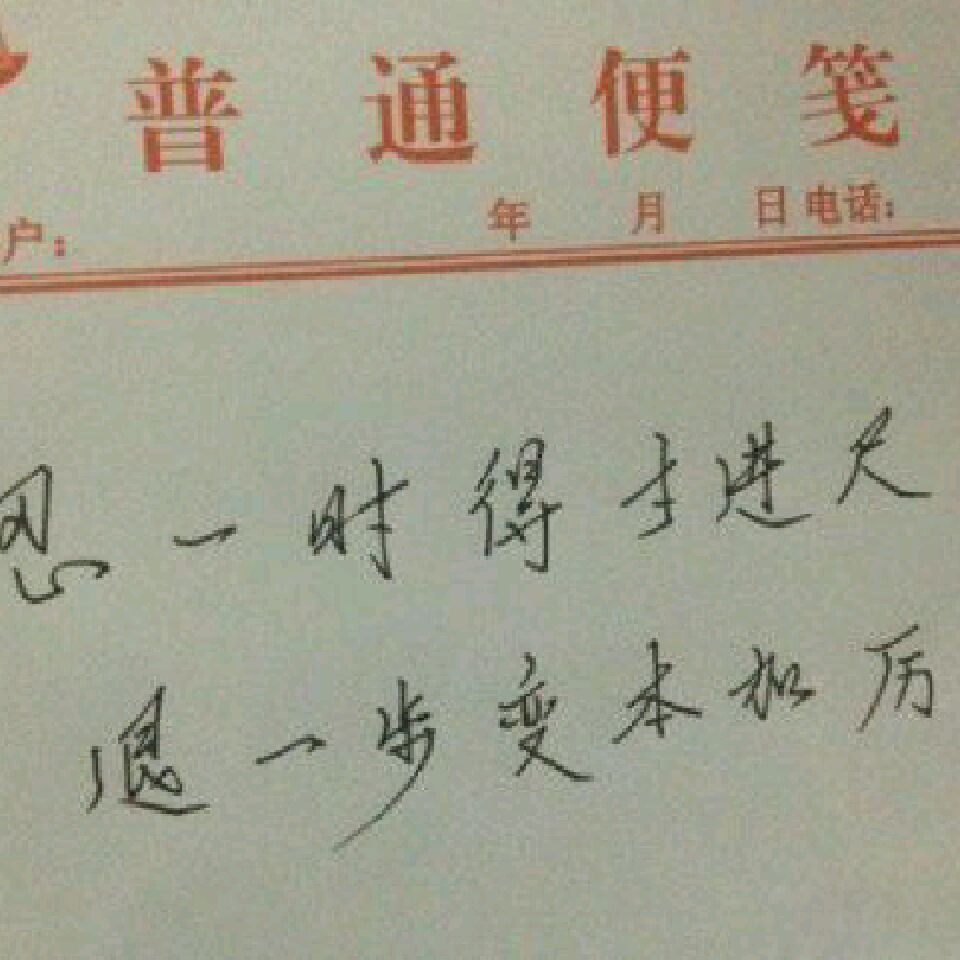 普通便笺
户: 年 月 日 电话:
忍一时得寸进尺
退一步变本加厉